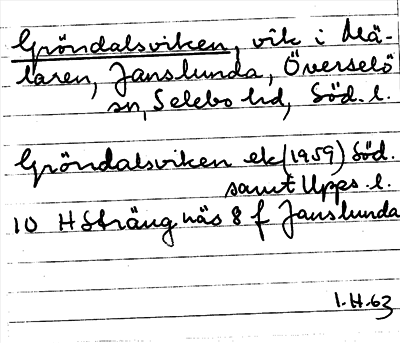 Gröndalsviken, vik i Mä-
laren, Janslunda, Överselö
sn, Selebo hd, Söd. l.
Gröndalsviken ek (1959) Söd.
samt Upps. l.
10 H Strängnäs 8 f Janslunda
1.H.63